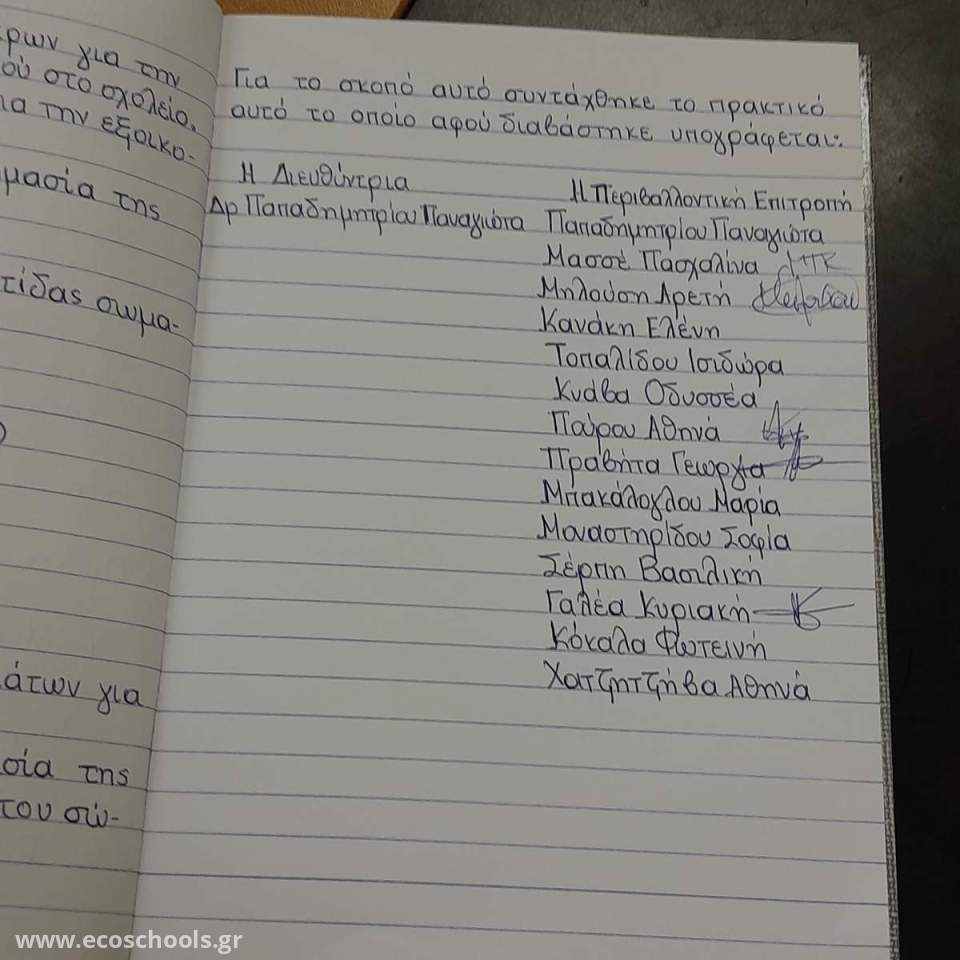 ρων για την
ού στο σχολείο.
ια την εξοικο-
μασία της
τίδας σωμα-
άτων για
σία της
του σώ-
Για το σκοπό αυτό συντάχθηκε το πρακτικό
αυτό το οποίο αφού διαβάστηκε υπογράφεται:
Η Διευθύντρια
Δρ Παπαδημητρίου Παναγιώτα
Η Περιβαλλοντική Επιτροπή
Παπαδημητρίου Παναγιώτα
Μασσέ Πασχαλίνα
Μηλούση Αρετή
Κανάκη Ελένη
Τοπαλίδου Ισιδώρα
Κυάβα Οδυσσέα
Παύρου Αθηνά
Πραβήτα Γεωργία
Μπακάλογλου Μαρία
Μοναστηρίδου Σοφία
Σέρπη Βασιλική
Γαλέα Κυριακή
Κόκαλα Φωτεινή
Χατζητζήβα Αθηνά
www.ecoschools.gr